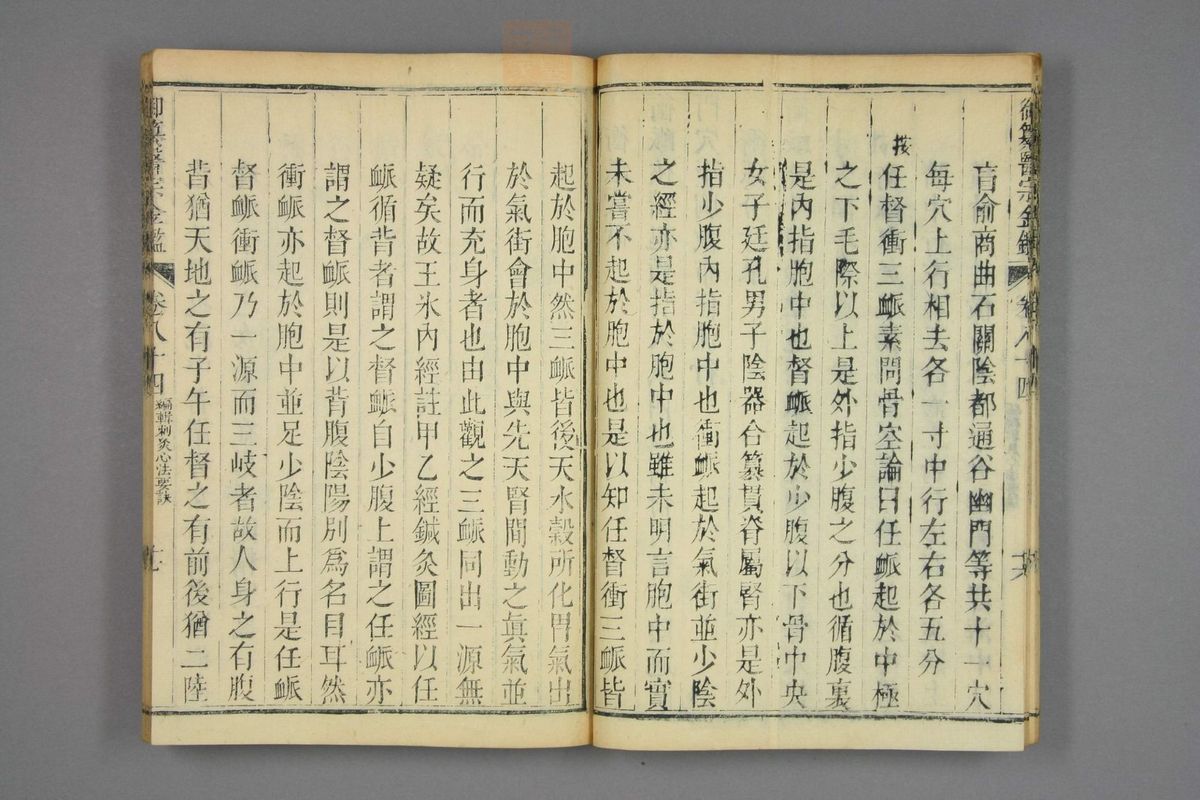 御纂醫宗金鑑 卷八十四
肓俞商曲石關陰都通谷幽門等共十一穴
每穴上行相去各一寸中行左右各五分
按任督衝三䘑素問骨空論曰任䘑起於中極
之下毛際以上是外指少腹之分也循腹裏
是內指胞中也督䘑起於少腹以下骨中央
女子廷孔男子陰器合篡貫脊屬腎亦是外
指少腹內指胞中也衝䘑起於氣街並少陰
之經亦是指於胞中也雖未明言胞中而實
未嘗不起於胞中也是以知任督衝三䘑皆
起於胞中然三䘑皆後天水穀所化胃氣出
於氣街會於胞中與先天腎間動之眞氣並
行而充身者也由此觀之三䘑同出一源無
疑矣故王氷內經註甲乙經鍼灸圖經以任
䘑循背者謂之督䘑自少腹上謂之任䘑亦
謂之督䘑則是以背腹陰陽別爲名目耳然
衝䘑亦起於胞中並足少陰而上行是任䘑
督䘑衝䘑乃一源而三岐者故人身之有腹
背猶天地之有子午任督之有前後猶二陸
御纂醫宗金鑑 卷八十四 編輯刺灸心法要訣